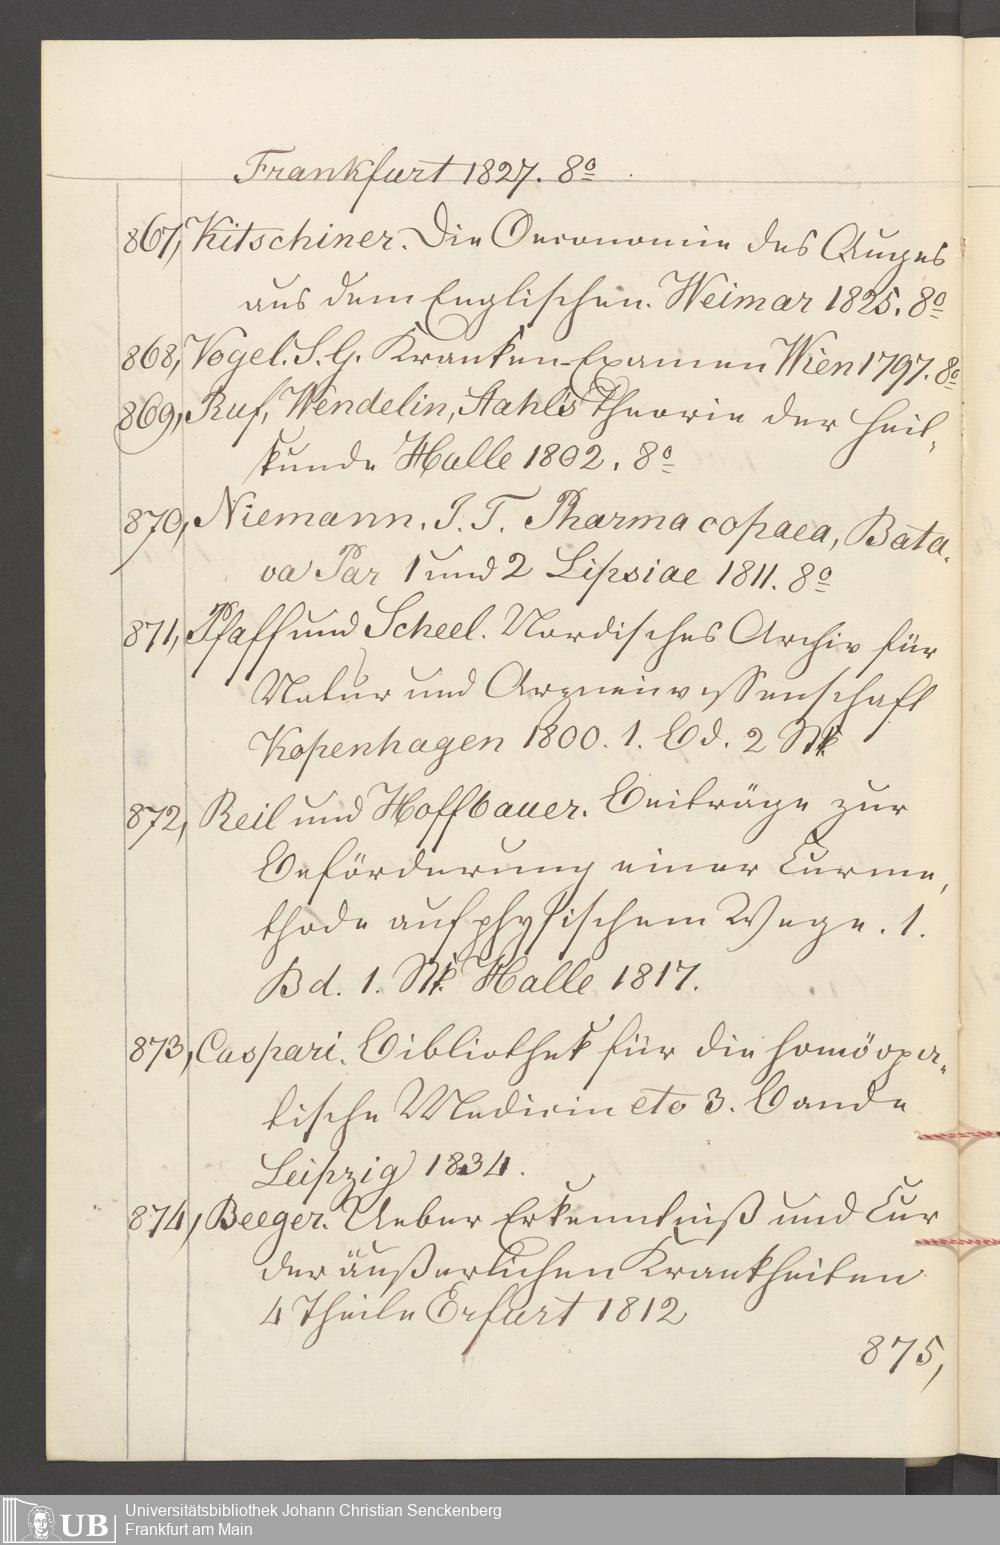 Frankfurt 1827. 8o
867, Kitschiner. Die Oeconomie des Auges
aus dem Englischen. Weimar 1825. 8o
868, Vogel. S. G. Kranken-Examen Wien 1797. 8o
869, Ruf, Wendelin, Stahls Theorie der Heil-
kunde Halle 1802. 8o
870, Niemann. J. T. Pharmacopaea, Bata-
va Par 1 und 2 Lipsiae 1811. 8o
871, Pfaff und Scheel. Nordisches Archiv für
Natur und Arzneiwissenschaft
Kopenhagen 1800. 1. Bd. 2 Stk
872, Reil und Hoffbauer. Beiträge zur
Beförderung einer Curme-
thode auf physischem Wege. 1.
Bd. 1. Stk. Halle 1817.
873, Caspari. Bibliothek für die homöopa-
tische Medicin etc 3. Bande
Leipzig 1834.
874, Beeger. Ueber Erkenntniß und Cur
der äußerlichen Krankheiten
4 Theile Erfurt 1812
875,
UB
Universitätsbibliothek Johann Christian Senckenberg
Frankfurt am Main